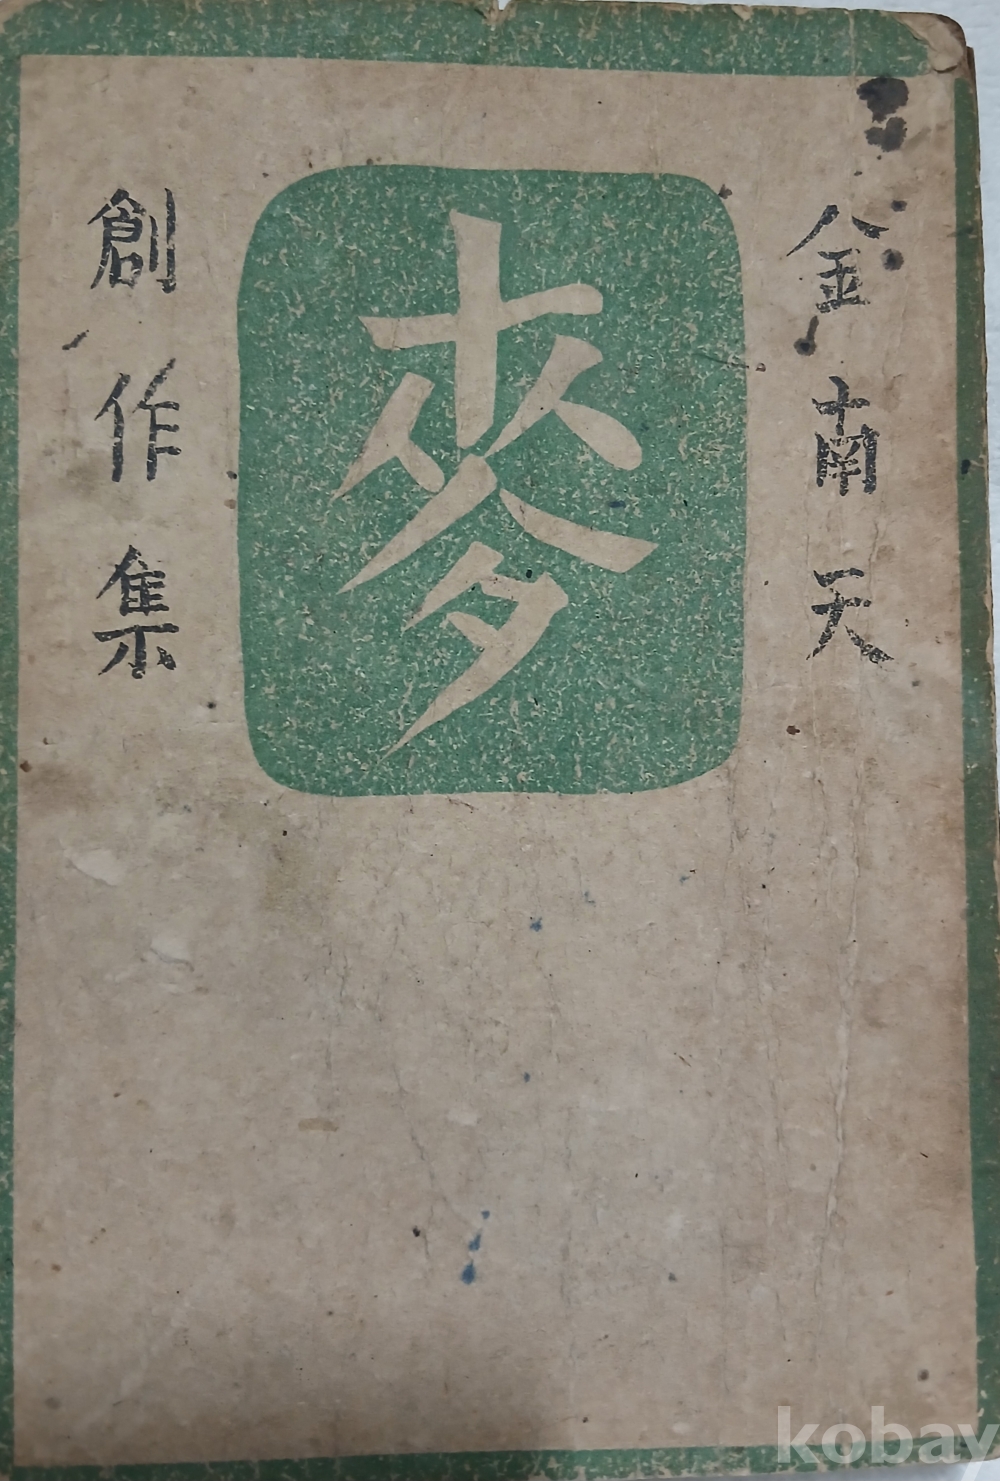 金南天
麥
創作集
kobay